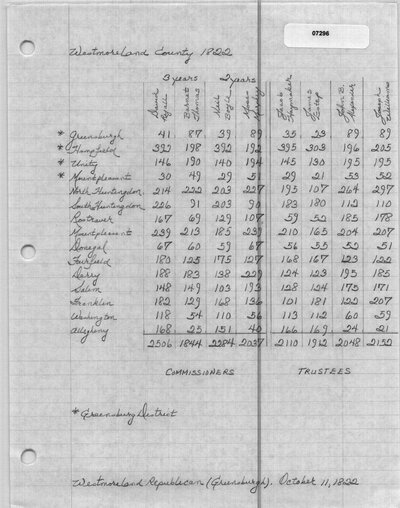 07296
Westmoreland County 1822
3 years 2 years
Barnet Thomas Neil Boyle Jacob Haymaker James Estep John B. Alexander Joseph Williams
* Greensburgh 41 87 39 89 35 23 89 89
* Hempfield 392 198 392 192 395 303 196 205
* Unity 146 190 140 194 145 130 195 195
* Mountpleasant 30 49 29 51 29 21 53 52
North Huntingdon 214 222 203 227 195 107 264 297
South Huntingdon 226 91 203 90 183 180 112 110
Rostraver 167 69 129 107 59 52 185 178
Mountpleasant 239 213 185 239 210 165 204 207
Donegal 67 60 59 67 56 55 52 51
Fairfield 180 125 175 127 168 167 123 122
Derry 188 183 138 229 124 123 195 185
Salem 148 149 103 193 128 124 175 171
Franklin 182 129 168 136 101 181 122 207
Washington 118 54 110 56 113 112 60 59
Allegheny 168 25 151 40 166 169 24 21
2506 1844 2284 2037 2110 1912 2048 2152
COMMISSIONERS TRUSTEES
* Greensburg District
Westmoreland Republican (Greensburgh). October 11, 1822